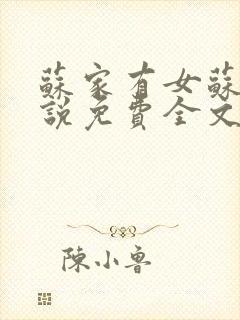 蘇家有女蘇
說免費全文
陳小魯